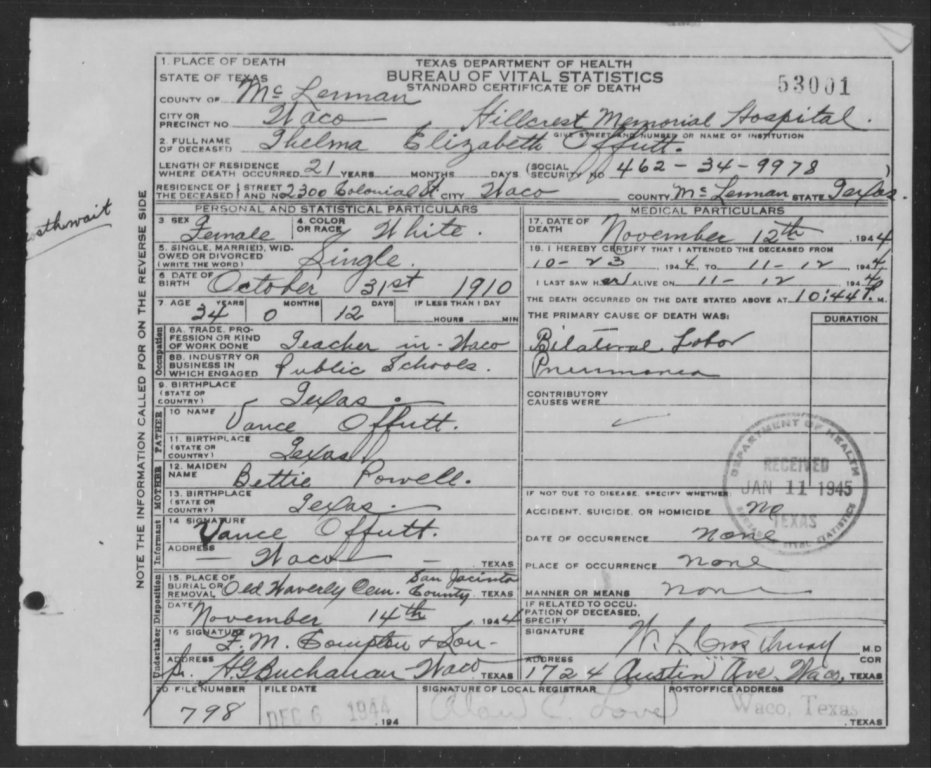 1. PLACE OF DEATH
STATE OF TEXAS
TEXAS DEPARTMENT OF HEALTH
BUREAU OF VITAL STATISTICS
STANDARD CERTIFICATE OF DEATH
53001
COUNTY OF McLennan
CITY OR PRECINCT NO Waco Hillcrest Memorial Hospital.
GIVE STREET AND NUMBER OR NAME OF INSTITUTION
2. FULL NAME OF DECEASED Thelma Elizabeth Offutt.
LENGTH OF RESIDENCE WHERE DEATH OCCURRED 21 YEARS MONTHS DAYS (SOCIAL SECURITY NO. 462-34-9978)
RESIDENCE OF THE DECEASED STREET AND NO 2300 Colonial St CITY Waco COUNTY McLennan STATE Texas.
NOTE THE INFORMATION CALLED FOR ON THE REVERSE SIDE
PERSONAL AND STATISTICAL PARTICULARS
3 SEX Female 4 COLOR OR RACE White.
5. SINGLE, MARRIED, WIDOWED OR DIVORCED (WRITE THE WORD) Single.
6 DATE OF BIRTH October 31st 1910
7 AGE 34 YEARS 0 MONTHS 12 DAYS IF LESS THAN 1 DAY HOURS MIN
Occupation
8A. TRADE, PROFESSION OR KIND OF WORK DONE Teacher in-Waco
8B. INDUSTRY OR BUSINESS IN WHICH ENGAGED Public Schools.
9. BIRTHPLACE (STATE OR COUNTRY) Texas.
FATHER
10 NAME Vance Offutt.
11. BIRTHPLACE (STATE OR COUNTRY) Texas
MOTHER
12. MAIDEN NAME Bettie Powell.
13. BIRTHPLACE (STATE OR COUNTRY) Texas.
Informant
14 SIGNATURE Vance Offutt.
ADDRESS Waco - TEXAS
Disposition
15. PLACE OF BURIAL OR REMOVAL Old Waverly Cem. San Jacinto County. TEXAS
DATE November 14th 1944
Undertaker
16 SIGNATURE F. M. Compton & Son-
ADDRESS HGBuchanan Waco TEXAS
MEDICAL PARTICULARS
17. DATE OF DEATH November 12th 1944
18. I HEREBY CERTIFY THAT I ATTENDED THE DECEASED FROM
10-23 1944 TO 11-12 1944
I LAST SAW HER ALIVE ON 11-12 194
THE DEATH OCCURRED ON THE DATE STATED ABOVE AT 10:44P. M.
THE PRIMARY CAUSE OF DEATH WAS: DURATION
Bilateral Lobar
Pneumonia
CONTRIBUTORY CAUSES WERE
DEPARTMENT OF HEALTH
RECEIVED
JAN 11 1945
TEXAS
VITAL STATISTICS
IF NOT DUE TO DISEASE, SPECIFY WHETHER:
ACCIDENT, SUICIDE, OR HOMICIDE No
DATE OF OCCURRENCE none
PLACE OF OCCURRENCE none
MANNER OR MEANS none
IF RELATED TO OCCUPATION OF DECEASED, SPECIFY
SIGNATURE M.D
COR
ADDRESS 1724 Austin Ave Waco, TEXAS
20 FILE NUMBER 798
FILE DATE DEC 6 1944 .194
SIGNATURE OF LOCAL REGISTRAR
POSTOFFICE ADDRESS Waco, Texas
. TEXAS